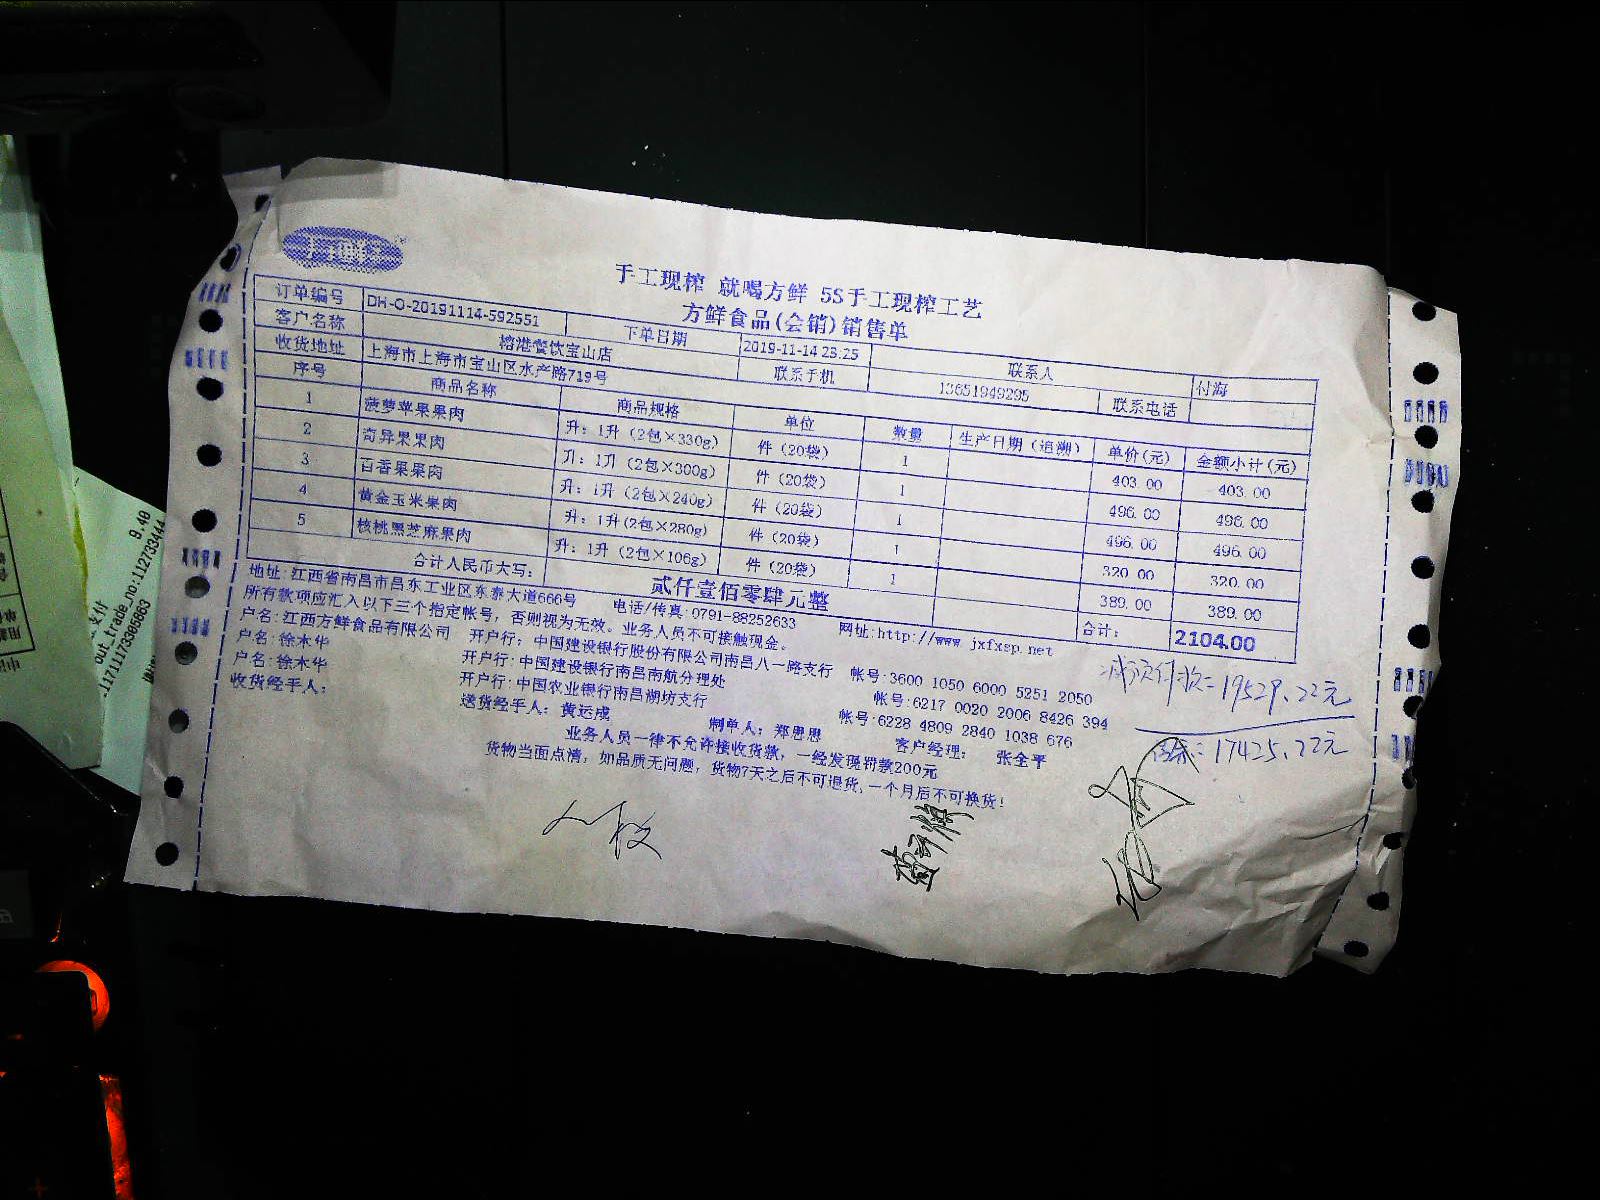 方鲜
手工现榨 就喝方鲜 5S手工现榨工艺
方鲜食品(会销)销售单
订单编号 DH-O-20191114-592551 下单日期 2019-11-14 23:25 联系人 付海
客户名称 榕港餐饮宝山店 联系手机 13651949295 联系电话
收货地址 上海市上海市宝山区水产路719号
序号 商品名称 商品规格 单位 数量 生产日期(追溯) 单价(元) 金额小计(元)
1 菠萝苹果果肉 升: 1升 (2包×330g) 件 (20袋) 1 403.00 403.00
2 奇异果果肉 升: 1升 (2包×300g) 件 (20袋) 1 496.00 496.00
3 百香果果肉 升: 1升 (2包×240g) 件 (20袋) 1 496.00 496.00
4 黄金玉米果肉 升: 1升 (2包×280g) 件 (20袋) 1 320.00 320.00
5 核桃黑芝麻果肉 升: 1升 (2包×106g) 件 (20袋) 1 389.00 389.00
合计人民币大写: 贰仟壹佰零肆元整 合计: 2104.00
地址:江西省南昌市昌东工业区东泰大道666号 电话/传真:0791-88252633 网址:http://www.jxfxsp.net
所有款项应汇入以下三个指定帐号, 否则视为无效。业务人员不可接触现金。
户名:江西方鲜食品有限公司 开户行: 中国建设银行股份有限公司南昌八一路支行 帐号:3600 1050 6000 5251 2050
户名:徐木华 开户行:中国建设银行南昌南航分理处 帐号:6217 0020 2006 8426 394
户名:徐木华 开户行:中国农业银行南昌湖坊支行 帐号:6228 4809 2840 1038 676
收货经手人: 送货经手人: 黄运成 制单人: 郑思思 客户经理: 张全平
业务人员一律不允许接收货款, 一经发现罚款200元
货物当面点清, 如品质无问题, 货物7天之后不可退货,一个月后不可换货!
19529.22元
17425.22元
9.40
支付
out_trade_no:112733444